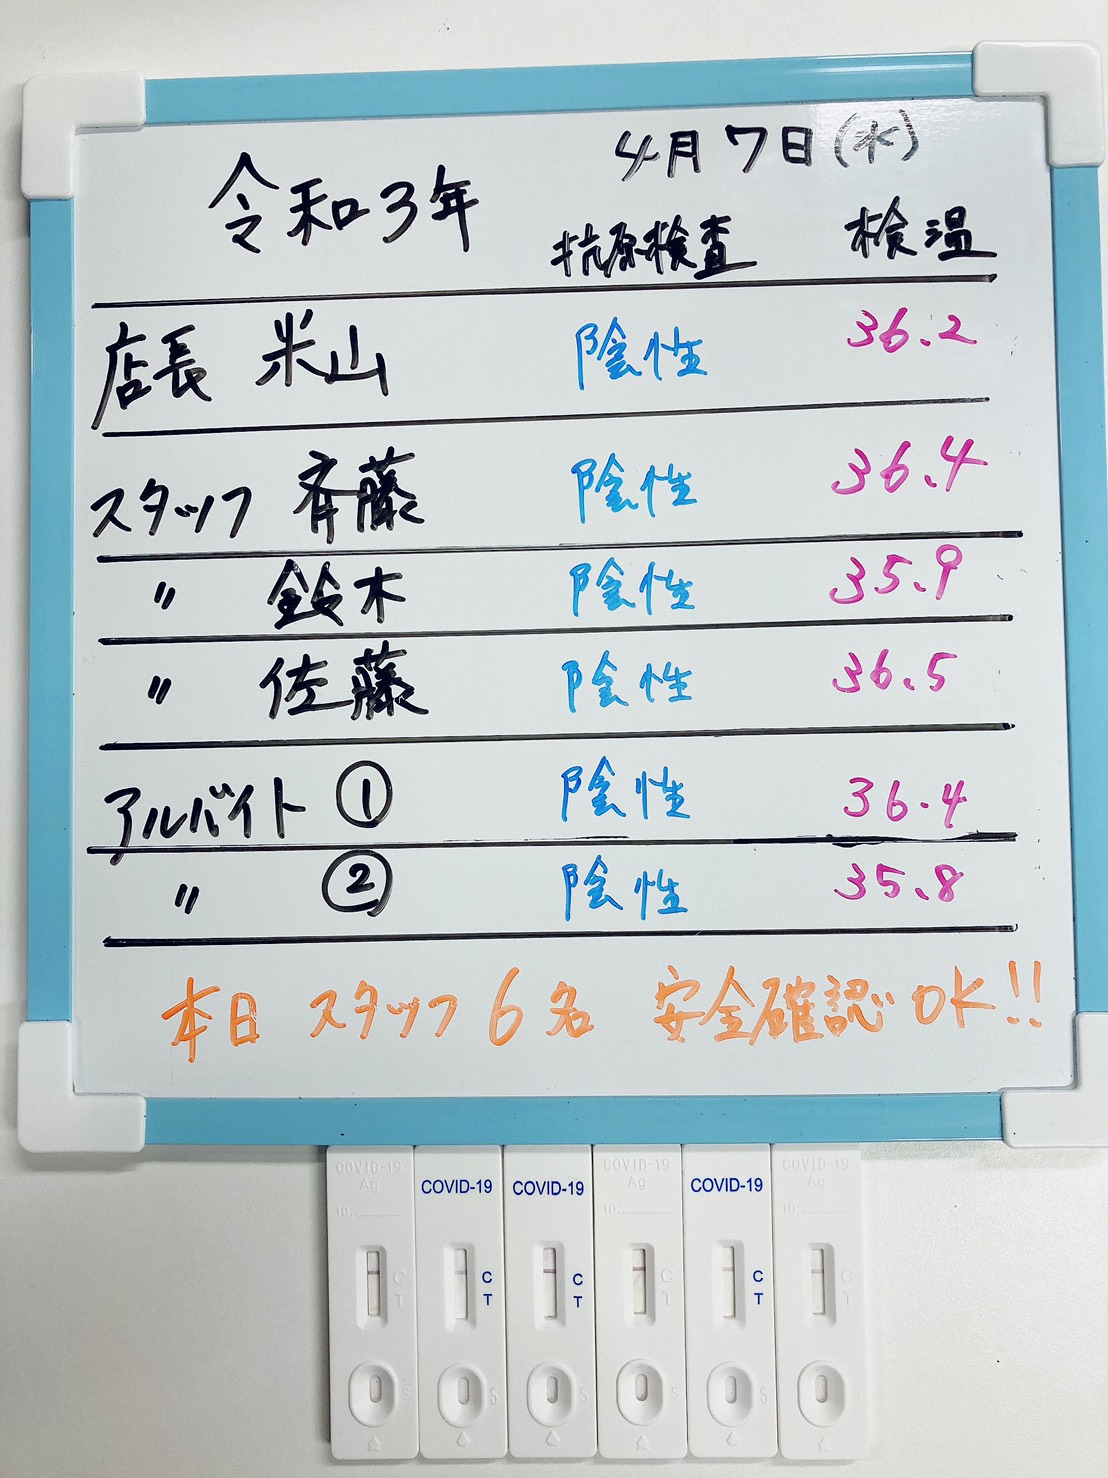 令和3年 4月7日(水)
抗原検査 検温
店長 米山 陰性 36.2
スタッフ 斉藤 陰性 36.4
〃 鈴木 陰性 35.9
〃 佐藤 陰性 36.5
アルバイト ① 陰性 36.4
〃 ② 陰性 35.8
本日 スタッフ6名 安全確認OK!!
COVID-19 COVID-19 COVID-19 COVID-19 COVID-19 COVID-19
Ag Ag Ag
ID: ID: ID:
C C C C C C
T T T T T T
S S S S S S